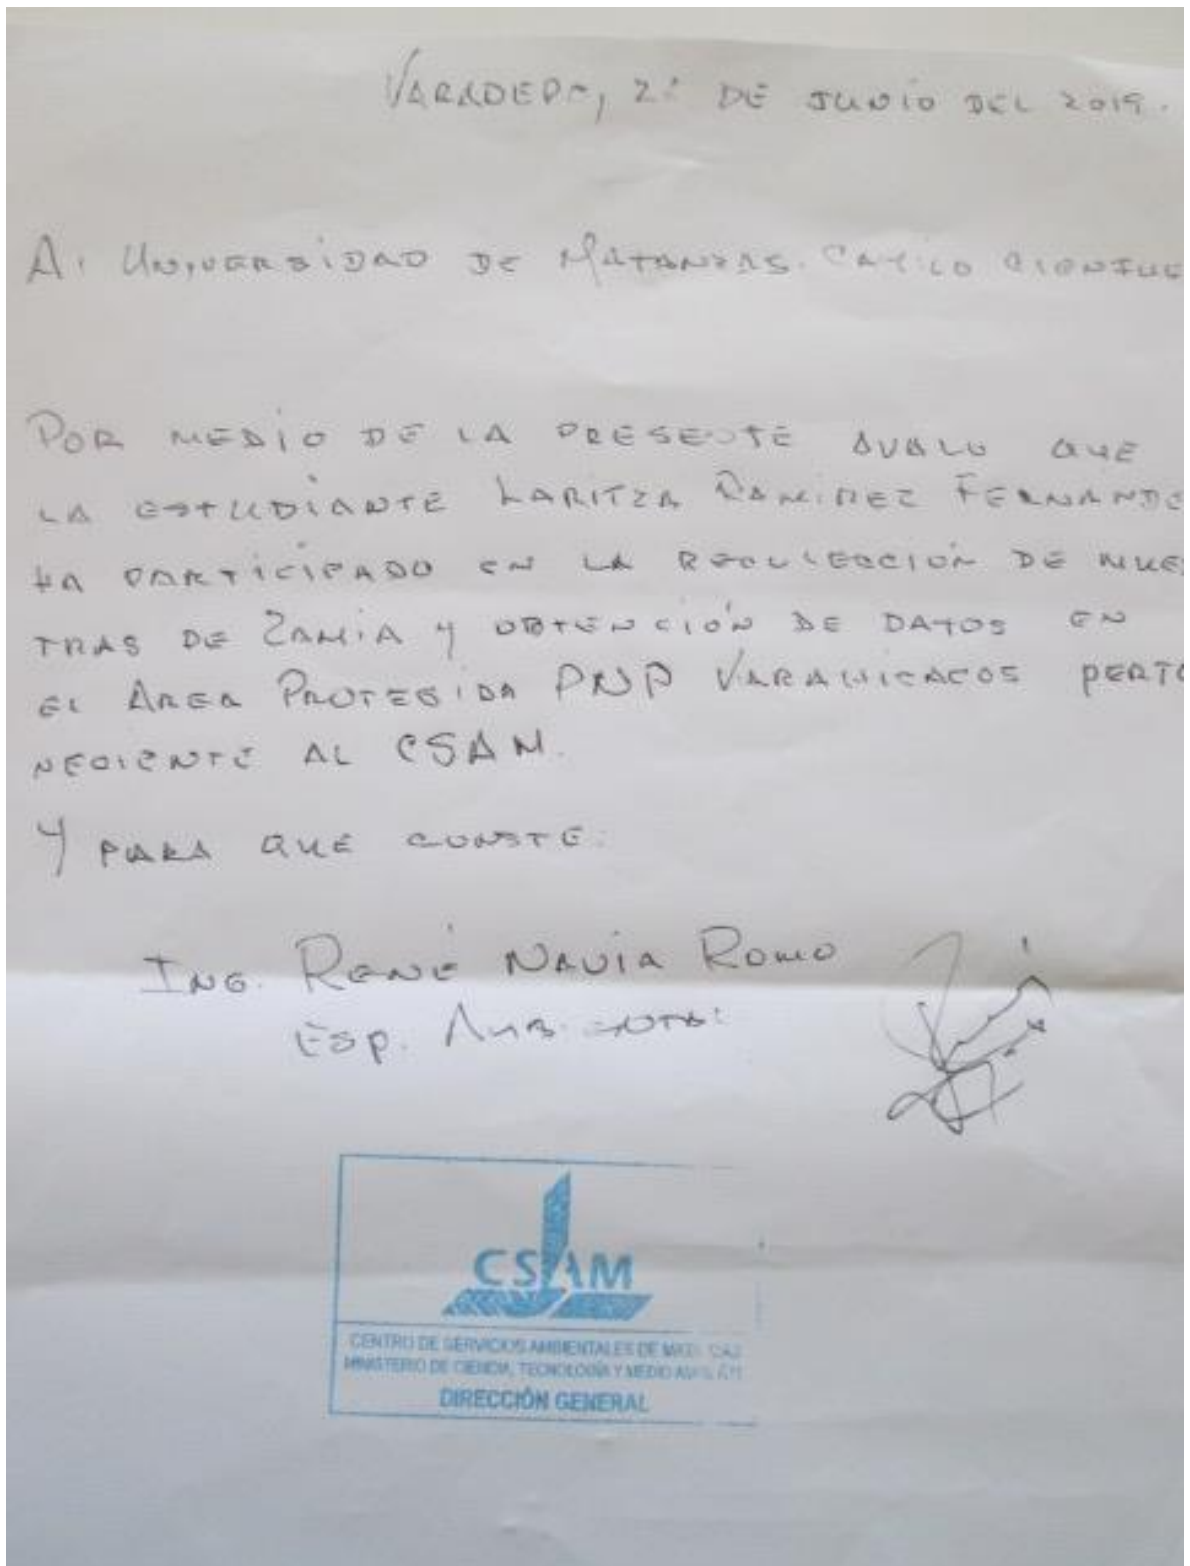 VARADERO, 2 DE JUNIO DEL 2019.
A: UNIVERSIDAD DE MATANZAS. CAMILO CIENFUE
POR MEDIO DE LA PRESENTE AVALO QUE
LA ESTUDIANTE LARITZA RAMIREZ FERNANDE
HA PARTICIPADO EN LA RECOLECCIÓN DE MUES
TRAS DE ZAMIA Y OBTENCIÓN DE DATOS EN
EL AREA PROTEGIDA PNP VARAHICACOS PERTE
NECIENTE AL CSAM.
Y PARA QUE CONSTE.
ING. RENÉ NAVIA ROMO
ESP. AMBIENTAL
CSAM
CENTRO DE SERVICIOS AMBIENTALES DE
MINISTERIO DE CIENCIA, TECNOLOGÍA Y MEDIO
DIRECCIÓN GENERAL